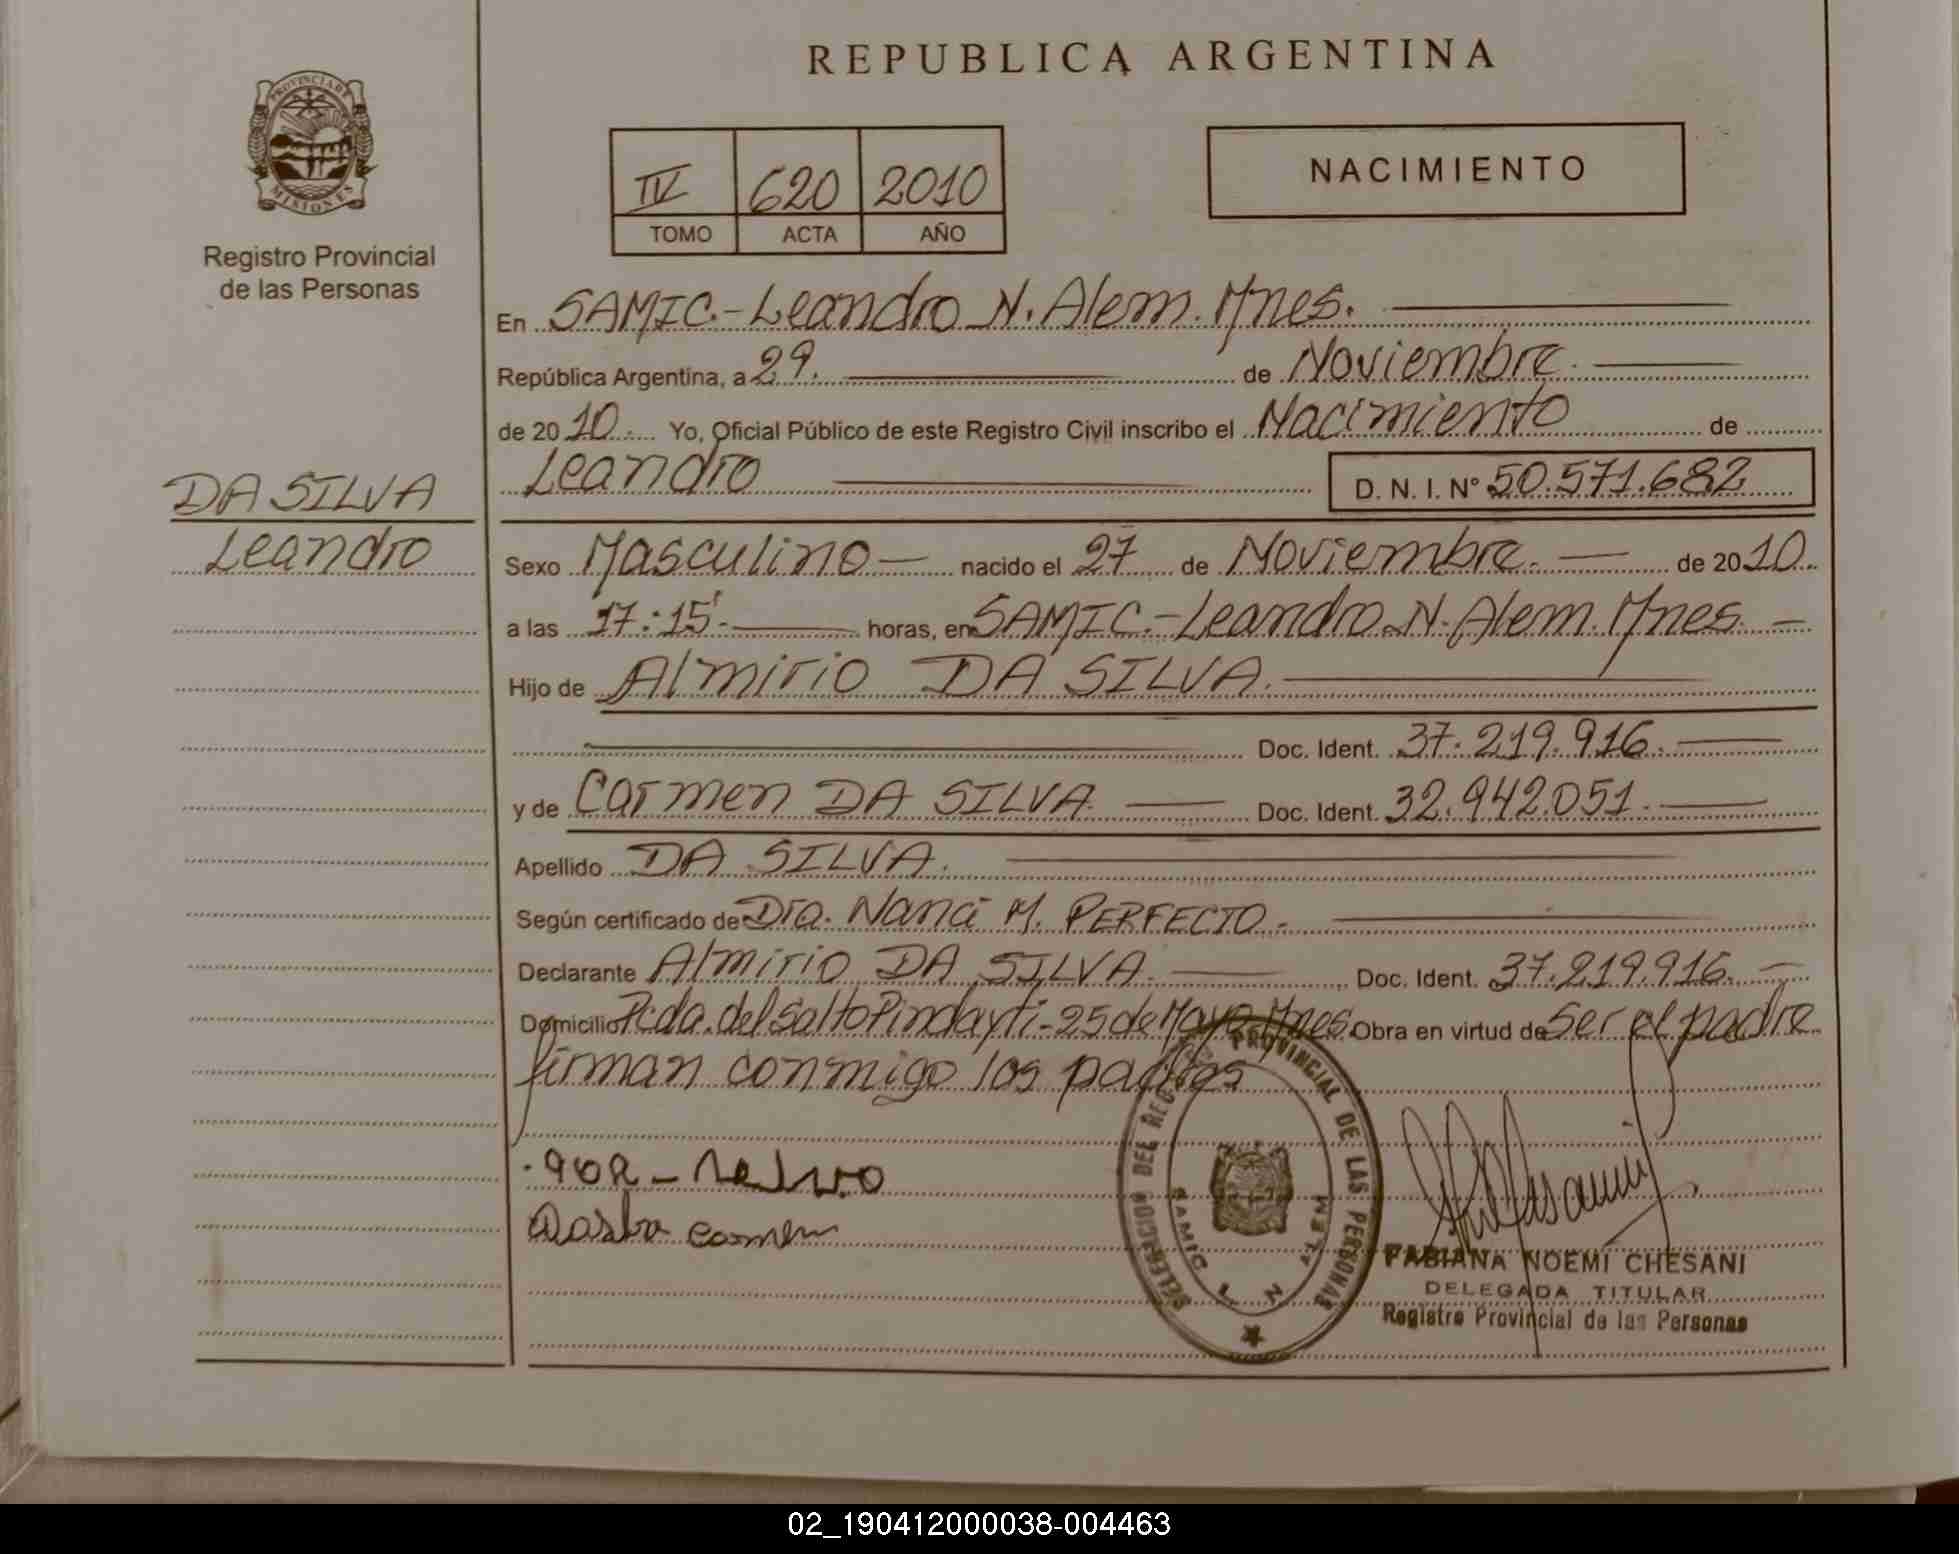 REPUBLICA ARGENTINA
PROVINCIA DE
MISIONES
Registro Provincial
de las Personas
IV 620 2010
TOMO ACTA AÑO
NACIMIENTO
En SAMIC.-Leandro N. Alem. Mnes.
República Argentina, a 29. de Noviembre.
de 2010.- Yo, Oficial Público de este Registro Civil inscribo el Nacimiento de
Leandro D. N. I. N° 50.571.682
DA SILVA
Leandro
Sexo Masculino nacido el 27 de Noviembre. de 2010.
a las 17:15'. horas, en SAMIC.-Leandro N. Alem. Mnes.
Hijo de Almirio DA SILVA.
Doc. Ident. 37.219.916.
y de Carmen DA SILVA. Doc. Ident. 32.942.051.
Apellido DA SILVA.
Según certificado de Dra. Nanci M. PERFECTO.
Declarante Almirio DA SILVA. Doc. Ident. 37.219.916.
Domicilio Pcda. del Salto Pindayti-25 de Mayo. Mnes. Obra en virtud de Ser el padre
firman conmigo los padres
PROVINCIAL DE LAS PERSONAS
DEL REG
SAMIC L N ALEM
FABIANA NOEMI CHESANI
DELEGADA TITULAR
Registro Provincial de las Personas
02_190412000038-004463